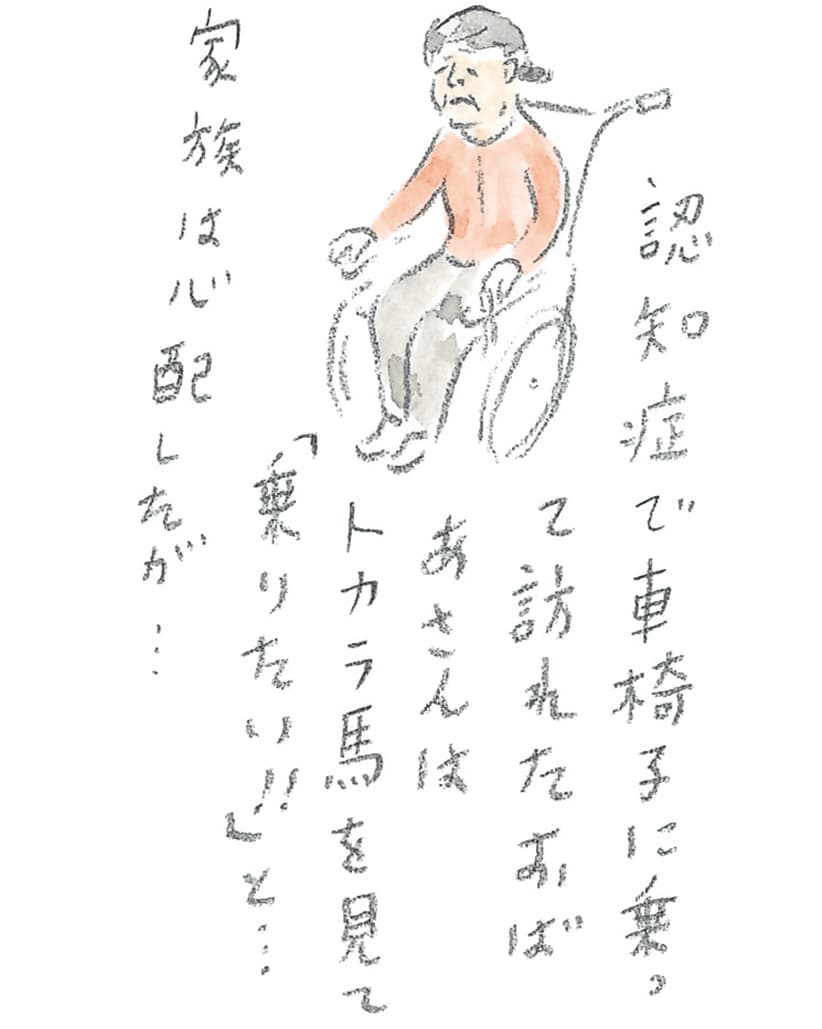 認知症で車椅子に乗っ
て訪れたおば
あさんは
トカラ馬を見て
「乗りたい!!」と…
家族は心配したが…